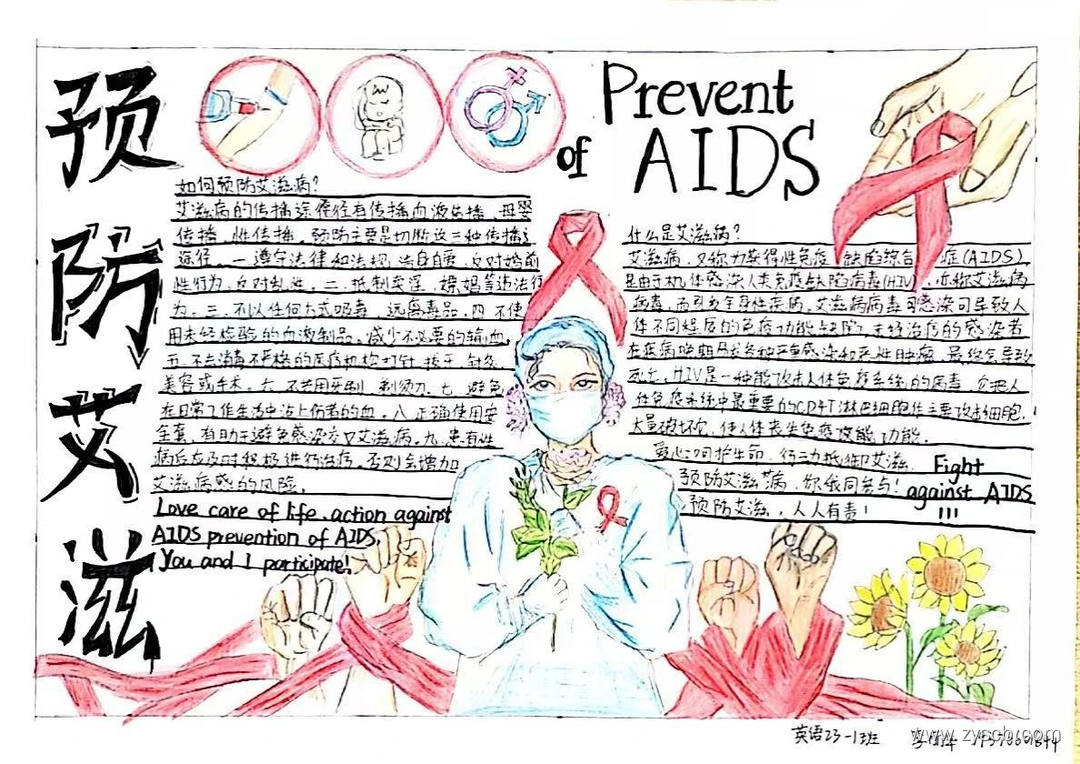 预防艾滋
Prevent
of AIDS
如何预防艾滋病?
艾滋病的传播途径有传播血液传播、母婴
传播、性传播。预防主要是切断这三种传播
途径。一.遵守法律和法规,洁身自爱、反对婚前
性行为,反对乱性。二.抵制卖淫、嫖娼等违法行
为。三.不以任何方式吸毒,远离毒品。四.不使
用未经检验的血液制品,减少不必要的输血。
五.不去消毒不严格的医疗机构打针、拔牙、针灸、
美容或手术。六.不共用牙刷、剃须刀。七.避免
在日常工作生活中沾上伤者的血。八.正确使用安
全套,有助于避免感染艾滋病。九.患有性
病后应及时积极进行治疗。否则会增加
艾滋病感的风险.
Love care of life, action against
AIDS prevention of AIDS,
You and I participate!
什么是艾滋病?
艾滋病,又称为获得性免疫缺陷综合症(AIDS)
是由于机体感染人类免疫缺陷病毒(HIV),亦称艾滋病
病毒,而引发全身性疾病。艾滋病病毒可感染可导致人
体不同程度的免疫功能缺陷,未经治疗的感染者
在疾病晚期易发各种严重感染和恶性肿瘤,最终会导致
死亡,HIV是一种能攻击人体免疫系统的病毒,它把人
体免疫系统中最重要的CD4T淋巴细胞作主要攻击细胞,
大量破坏它,使人体丧失免疫功能。
爱心呵护生命,行动抵御艾滋
预防艾滋病,你我同参与!
预防艾滋,人人有责!
Fight
against AIDS
!!!
英语23-13班
www.zysch.com